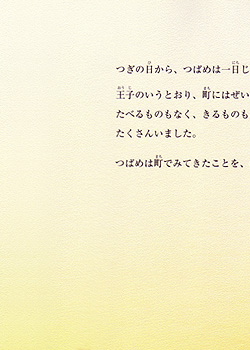 つぎの日から、つばめは一日じ
王子のいうとおり、町にはぜい
たべるものもなく、きるものも
たくさんいました。
つばめは町でみてきたことを、